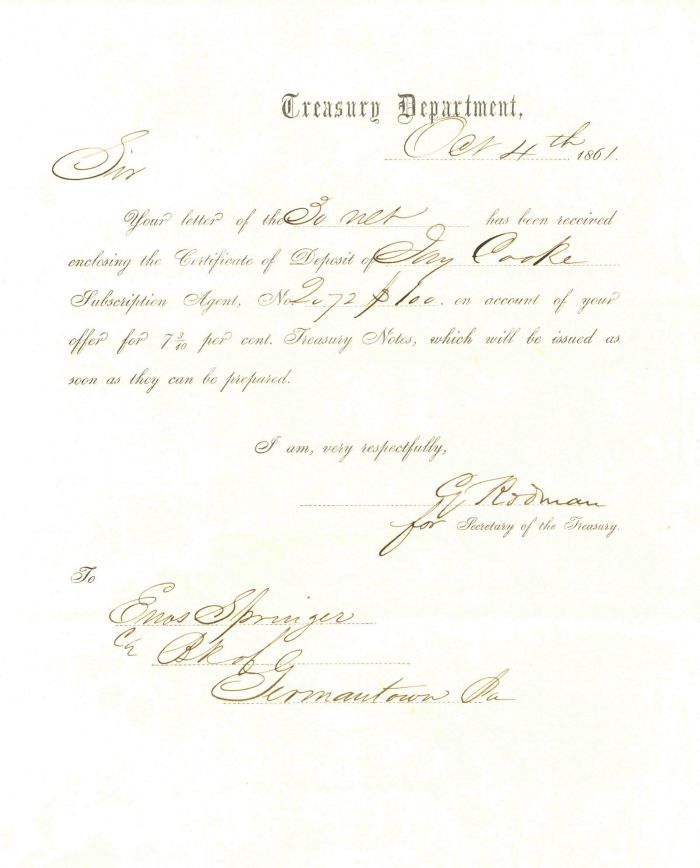 Treasury Department,
Oct 4th 1861.
Sir
Your letter of the 30 ult has been received
enclosing the Certificate of Deposit of Jay Cooke
Subscription Agent, No 2072 $100. on account of your
offer for 7 3/10 per cent. Treasury Notes, which will be issued as
soon as they can be prepared.
I am, very respectfully,
G Rodman
for Secretary of the Treasury.
To
Enos Springer
Bk of
Germantown Pa